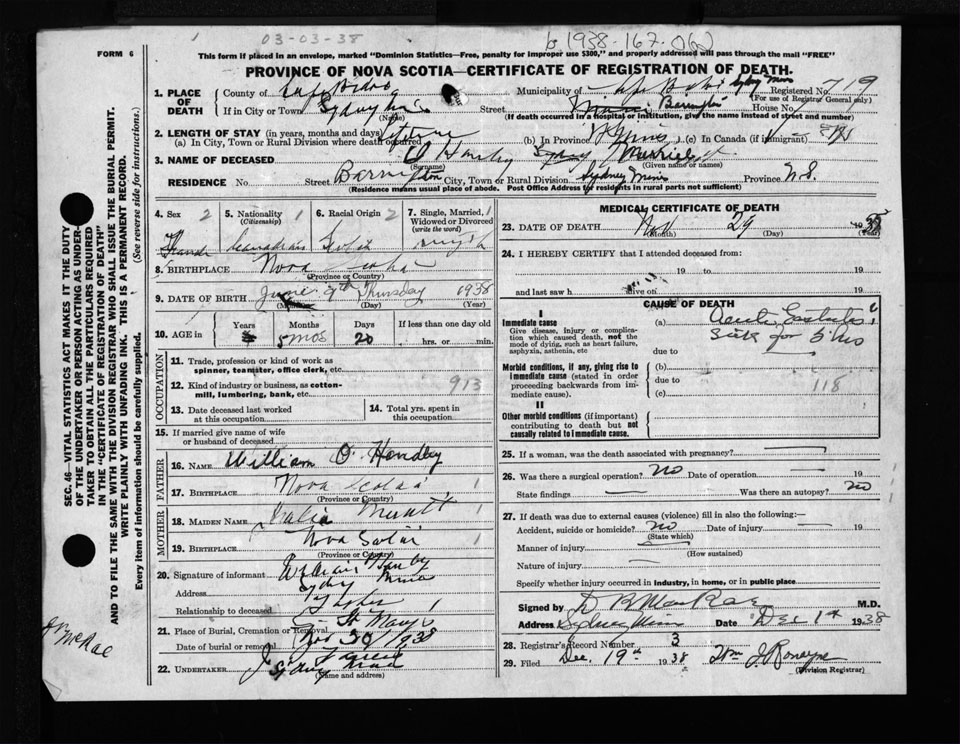 03-03-38
1938-167-062
FORM 6
This form if placed in an envelope, marked "Dominion Statistics—Free, penalty for improper use $300," and properly addressed will pass through the mail "FREE"
PROVINCE OF NOVA SCOTIA—CERTIFICATE OF REGISTRATION OF DEATH.
1. PLACE OF DEATH
County of Cape Breton
Municipality of Cape Breton Sydney Mines Registered No. 719
(For use of Registrar General only)
If in City or Town Sydney Mines
(Name)
Street Barrington House No.
(If death occurred in a hospital or institution, give the name instead of street and number)
2. LENGTH OF STAY (in years, months and days)
(a) In City, Town or Rural Division where death occurred Lifetime (b) In Province (c) In Canada (if immigrant)
3. NAME OF DECEASED
(Surname) (Given name or names)
RESIDENCE No. Street Barrington City, Town or Rural Division Sydney Mines Province N.S.
(Residence means usual place of abode. Post Office Address for residents in rural parts not sufficient)
4. Sex 2
5. Nationality 1
(Citizenship)
Canadian
6. Racial Origin 2
Scotch
7. Single, Married, Widowed or Divorced 1
(write the word)
Single
8. BIRTHPLACE Nova Scotia
(Province or Country)
9. DATE OF BIRTH June 9th Thursday 1938
(Month) (Day) (Year)
10. AGE in
Years Months Days If less than one day old
5 mos 20 hrs. or min.
OCCUPATION
11. Trade, profession or kind of work as spinner, teamster, office clerk, etc.
12. Kind of industry or business, as cotton-mill, lumbering, bank, etc. 913
13. Date deceased last worked at this occupation
14. Total yrs. spent in this occupation
15. If married give name of wife or husband of deceased
FATHER
16. NAME William O. Handley
17. BIRTHPLACE Nova Scotia 1
(Province or Country)
MOTHER
18. MAIDEN NAME 1
19. BIRTHPLACE Nova Scotia 1
(Province or Country)
20. Signature of informant William
Address Sydney Mines
Relationship to deceased Father 1
21. Place of Burial, Cremation or Removal St Marys
Date of burial or removal Nov 30/1938
22. UNDERTAKER
Sydney
(Name and address)
MEDICAL CERTIFICATE OF DEATH
23. DATE OF DEATH Nov 29 1938
(Month) (Day) (Year)
24. I HEREBY CERTIFY that I attended deceased from:
19 to 19
and last saw h alive on 19
CAUSE OF DEATH
I
Immediate cause
Give disease, injury or complication which caused death, not the mode of dying, such as heart failure, asphyxia, asthenia, etc
(a) Acute Gastritis
Sick for 5 mo
due to
Morbid conditions, if any, giving rise to immediate cause (stated in order proceeding backwards from immediate cause).
(b)
due to 118
(c)
II
Other morbid conditions (if important) contributing to death but not causally related to immediate cause.
25. If a woman, was the death associated with pregnancy?
26. Was there a surgical operation? no Date of operation 19
State findings Was there an autopsy? no
27. If death was due to external causes (violence) fill in also the following:
Accident, suicide or homicide? no Date of injury 19
(State which)
Manner of injury
(How sustained)
Nature of injury
Specify whether injury occurred in industry, in home, or in public place
Signed by D R MacRae M.D.
Address Sydney Mines Date Dec 1st 1938
28. Registrar's Record Number 3
29. Filed Dec. 19th 1938 Wm J Ronayne
(Division Registrar)
SEC. 46—VITAL STATISTICS ACT MAKES IT THE DUTY OF THE UNDERTAKER OR PERSON ACTING AS UNDERTAKER TO OBTAIN ALL THE PARTICULARS REQUIRED IN THE "CERTIFICATE OF REGISTRATION OF DEATH" AND TO FILE THE SAME WITH THE DIVISION REGISTRAR WHO SHALL ISSUE THE BURIAL PERMIT.
WRITE PLAINLY WITH UNFADING INK. THIS IS A PERMANENT RECORD.
Every item of information should be carefully supplied. (See reverse side for instructions.)
McRae